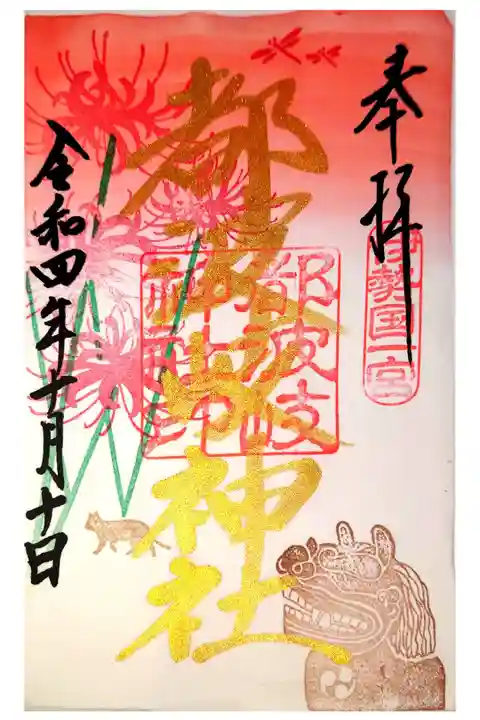 奉拝
伊勢国一宮
都波岐神社
都波岐
神社印
令和四年十月十日